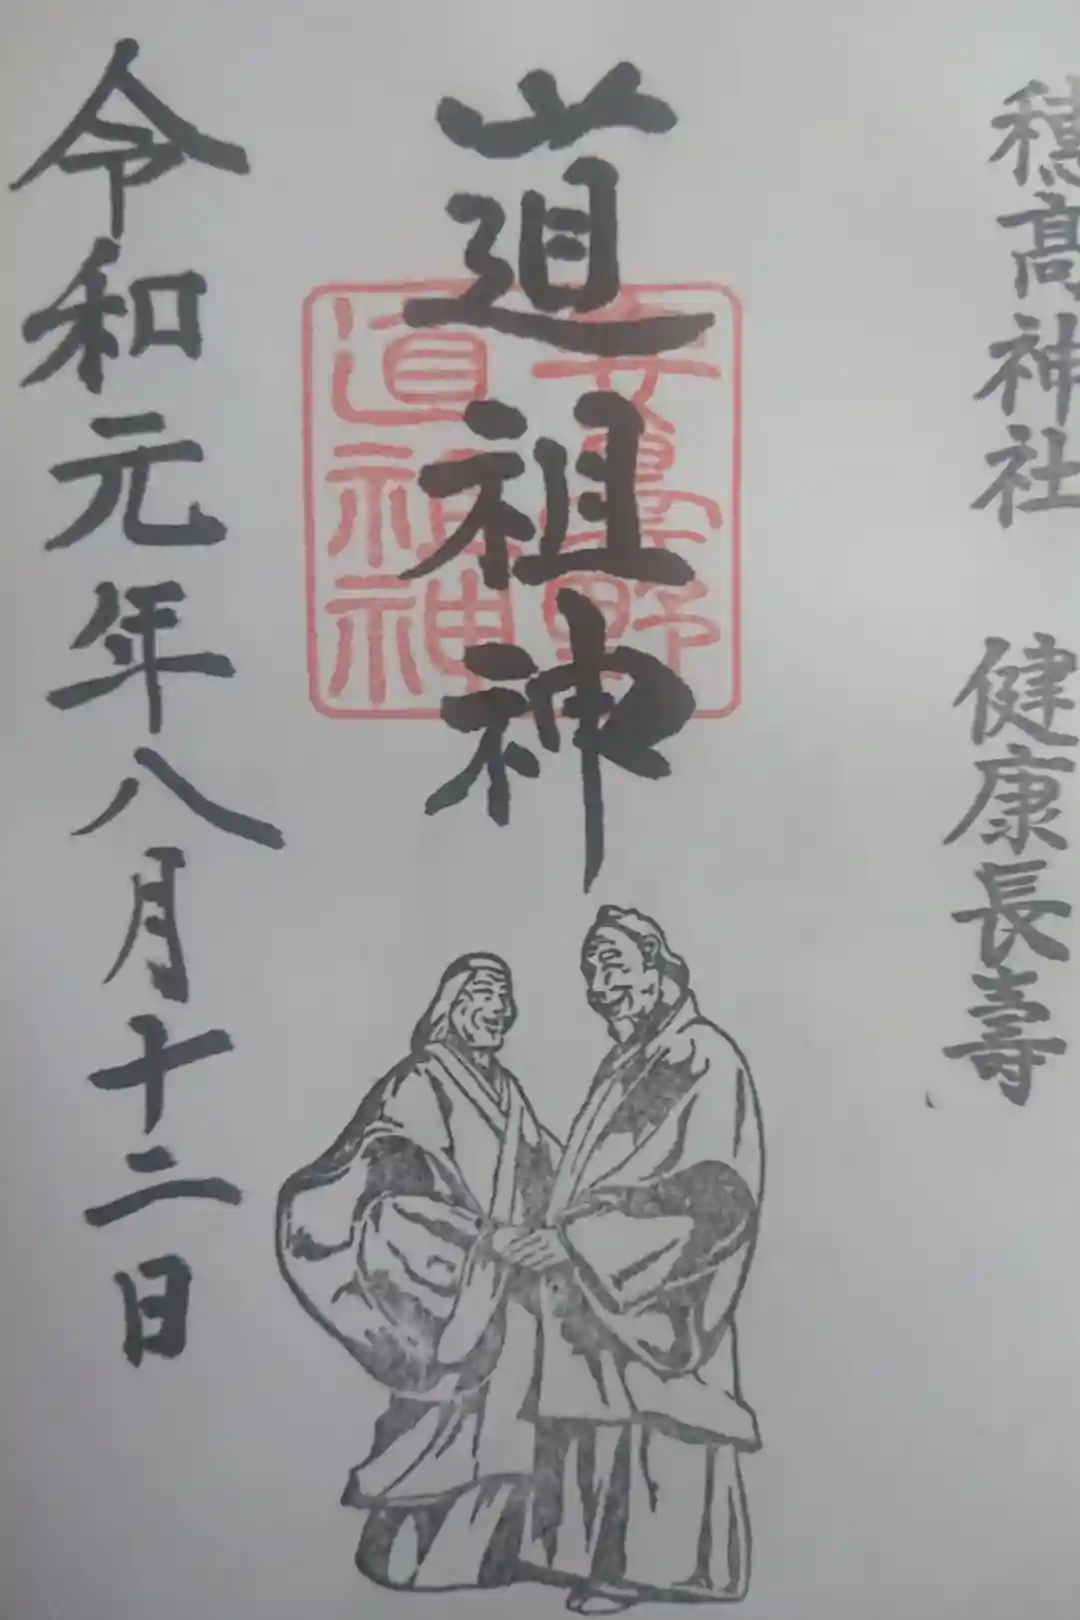 穂髙神社 健康長壽
道祖神
安曇野
道祖神
令和元年八月十二日